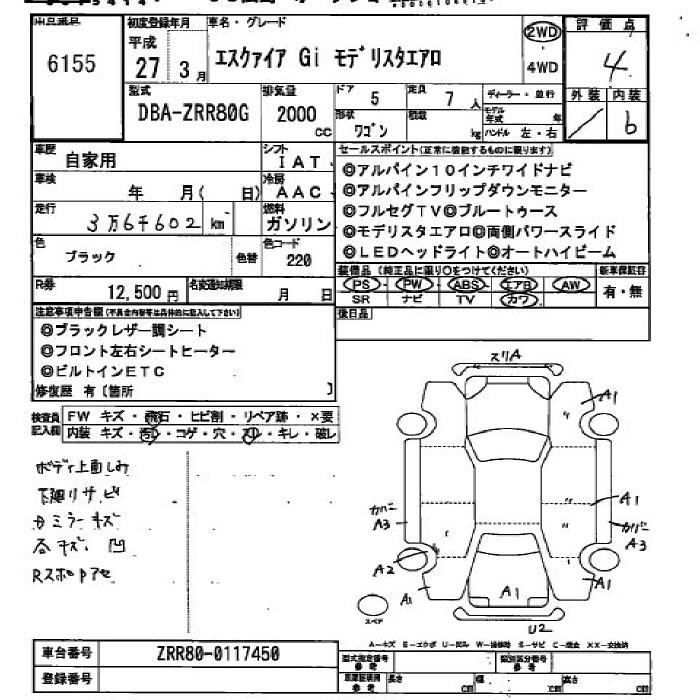 6155
初度登録年月
平成
27 3月
車名・グレード
エスクァイア Gi モデリスタエアロ
2WD
4WD
評価点
4
外装 内装
/ b
型式
DBA-ZRR80G
排気量
2000 cc
ドア 5
定員 7人
形状 ワゴン
積載 kg
ディーラー・並行
モデル年式 年
ハンドル 左・右
車歴 自家用
シフト IAT
車検 年 月( 日)
冷房 AAC
走行 3万6千602 km
燃料 ガソリン
色 ブラック
色替
色コード 220
R券 12,500 円
名変通知期限 月 日
セールスポイント(正常に機能するものに限ります)
◎アルパイン10インチワイドナビ
◎アルパインフリップダウンモニター
◎フルセグTV◎ブルートゥース
◎モデリスタエアロ◎両側パワースライド
◎LEDヘッドライト◎オートハイビーム
装備品(純正品に限り○をつけてください)
PS・PW・ABS・エアB・AW
SR ナビ TV カワ
新車保証書
有・無
後日品
注意事項申告欄(不具合内容等は具体的に記入して下さい)
◎ブラックレザー調シート
◎フロント左右シートヒーター
◎ビルトインETC
修復歴 有〔箇所 〕
検査員記入欄
FW キズ・飛石・ヒビ割・リペア跡・×要
内装 キズ・汚れ・コゲ・穴・スレ・キレ・破レ
ボディ上面しみ
下廻リサビ
ミラーキズ
各キズ、凹
スリA
A1
A1
カバー
A3
カバー
A3
A2
A1
A1
A1
U2
スペア
A-キズ E-エクボ U-凹み W-補修跡 S-サビ C-腐食 XX-交換済
車台番号 ZRR80-0117450
登録番号
型式指定番号 参考
類別区分番号 参考
長さ cm 幅 cm 高さ cm